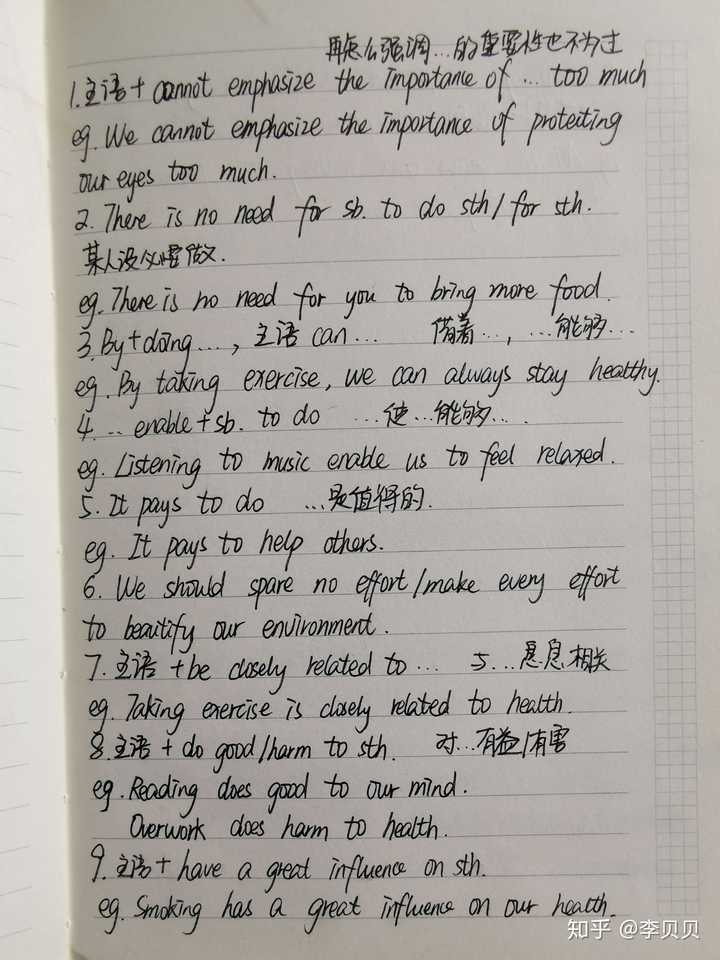 再怎么强调…的重要性也不为过
1.主语+cannot emphasize the importance of … too much
eg. We cannot emphasize the importance of proteiting
our eyes too much.
2. There is no need for sb. to do sth/for sth.
某人没必要做.
eg. There is no need for you to bring more food.
3. By+doing…, 主语 can… 借着…, …能够…
eg. By taking exercise, we can always stay healthy.
4. … enable+sb. to do …使…能够…
eg. Listening to music enable us to feel relaxed.
5. It pays to do …是值得的.
eg. It pays to help others.
6. We should spare no effort/make every effort
to beautify our environment.
7. 主语+be closely related to… 与…息息相关
eg. Taking exercise is closely related to health.
8.主语+do good/harm to sth. 对…有益/有害
eg. Reading does good to our mind.
Overwork does harm to health.
9.主语+have a great influence on sth.
eg. Smoking has a great influence on our health.
知乎 @李贝贝